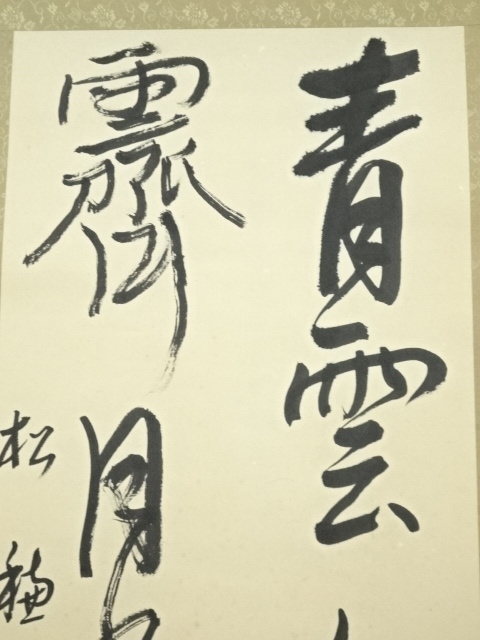 青雲
霽月
松